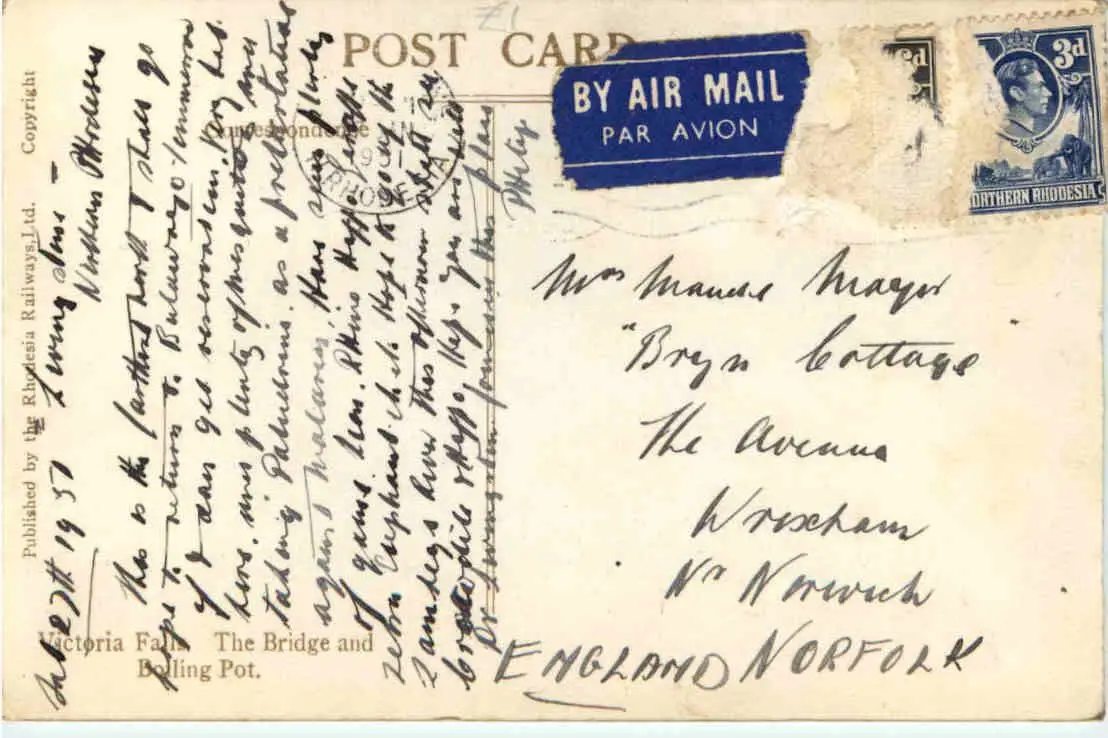 £1
POST CARD
BY AIR MAIL
PAR AVION
d
3d
NORTHERN RHODESIA
Correspondence
RHODESIA
Copyright
Published by the Rhodesia Railways, Ltd.
Feb 27th 1951 Livingstone
Northern Rhodesia
This is the farthest north I shall go
to return to Bulawayo tomorrow
if I can get reservations. Very hot
here. plenty of mosquitos
taking Paludrine as a precaution
against malaria. Have seen plenty
of game lions, Rhino Hippo, giraffe
zebra Elephant etc. Hope to go up the
Zambezi River this afternoon shall see
Crocodile & Hippo. Hope you are well
Dr Livingstone famous this place
Philip
Mrs Maude Mayer
"Bryn Cottage
The Avenue
Wroxham
Nr Norwich
NORFOLK
ENGLAND
Victoria Falls. The Bridge and
Boiling Pot.